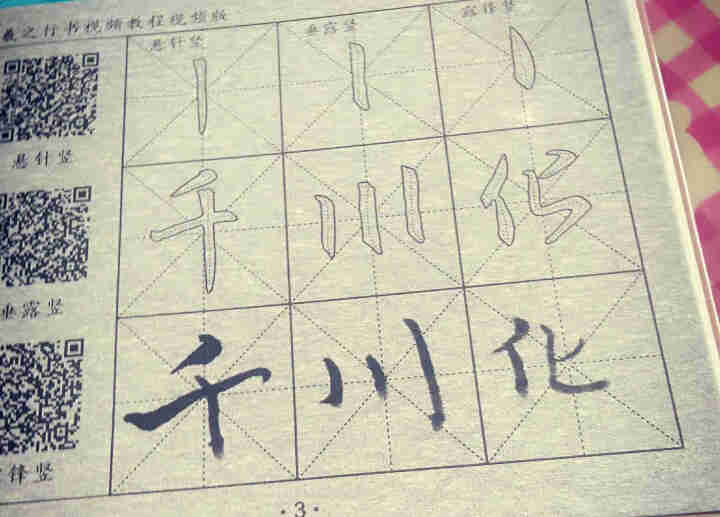 羲之行书视频教程视频版
悬针竖 垂露竖 露锋竖
悬针竖
千 川 化
垂露竖
千 川 化
锋竖
·3·